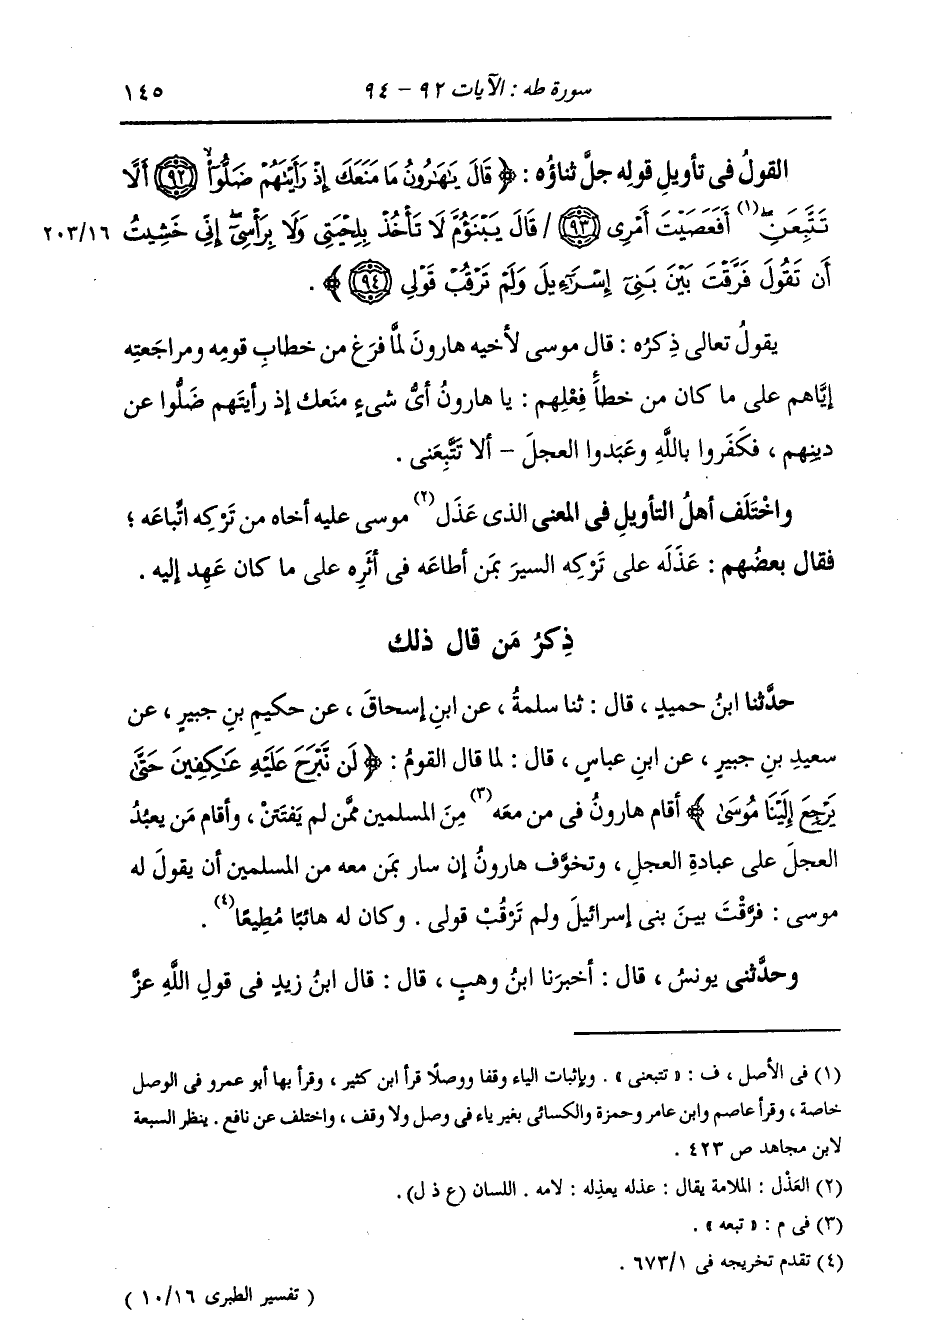 سورة طه : الآيات ٩٢ - ٩٤ ١٤٥
القولُ فى تأويلِ قولِه جلَّ ثناؤُه : ﴿ قَالَ يَٰهَٰرُونُ مَا مَنَعَكَ إِذْ رَأَيْتَهُمْ ضَلُّوٓا۟ ﴿٩٢﴾ أَلَّا
تَتَّبِعَنِۖ (١) أَفَعَصَيْتَ أَمْرِى ﴿٩٣﴾ / قَالَ يَبْنَؤُمَّ لَا تَأْخُذْ بِلِحْيَتِى وَلَا بِرَأْسِىٓۖ إِنِّى خَشِيتُ ٢٠٣/١٦
أَن تَقُولَ فَرَّقْتَ بَيْنَ بَنِىٓ إِسْرَٰٓءِيلَ وَلَمْ تَرْقُبْ قَوْلِى ﴿٩٤﴾ ﴾ .
يقولُ تعالى ذِكرُه : قال موسى لأخيه هارونَ لمَّا فرَغ من خطابِ قومِه ومراجَعتِه
إيَّاهم على ما كان من خطأَ فِعْلِهم : يا هارونُ أىُّ شىءٍ منَعك إذ رأيتَهم ضَلُّوا عن
دينِهم ، فكَفَروا باللَّهِ وعبَدوا العجلَ - ألا تَتَّبِعَنى .
واخْتَلَف أهلُ التأويلِ فى المعنى الذى عَذَل (٢) موسى عليه أخاه من تَرْكِه اتِّباعَه ؛
فقال بعضُهم : عَذَلَه على تَرْكِه السيرَ بمَن أطاعَه فى أثَرِه على ما كان عَهِد إليه .
ذِكرُ مَن قال ذلك
حدَّثنا ابنُ حميدٍ ، قال : ثنا سلمةُ ، عن ابنِ إسحاقَ ، عن حكيمِ بنِ جبيرٍ ، عن
سعيدِ بنِ جبيرٍ ، عن ابنِ عباسٍ ، قال : لما قال القومُ : ﴿ لَن نَّبْرَحَ عَلَيْهِ عَٰكِفِينَ حَتَّىٰ
يَرْجِعَ إِلَيْنَا مُوسَىٰ ﴾ أقام هارونُ فى من معَه (٣) مِنَ المسلمين ممَّن لم يَفتَتَنْ ، وأقام مَن يعبُدُ
العجلَ على عبادةِ العجلِ ، وتخوَّف هارونُ إن سار بمَن معه من المسلمين أن يقولَ له
موسى : فرَّقْتَ بينَ بنى إسرائيلَ ولم تَرْقُبْ قولى . وكان له هائبًا مُطِيعًا (٤) .
وحدَّثنى يونسُ ، قال : أخبرَنا ابنُ وهبٍ ، قال : قال ابنُ زيدٍ فى قولِ اللَّهِ عزَّ
(١) فى الأصل ، ف : « تتبعنى » . وبإثبات الياء وقفا ووصلًا قرأ ابن كثير ، وقرأ بها أبو عمرو فى الوصل
خاصة ، وقرأ عاصم وابن عامر وحمزة والكسائى بغير ياء فى وصل ولا وقف ، واختلف عن نافع . ينظر السبعة
لابن مجاهد ص ٤٢٣ .
(٢) العَذْل : الملامة يقال : عذله يعذِله : لامه . اللسان (ع ذ ل).
(٣) فى م : « تبعه » .
(٤) تقدم تخريجه فى ٦٧٣/١ .
( تفسير الطبرى ١٠/١٦ )